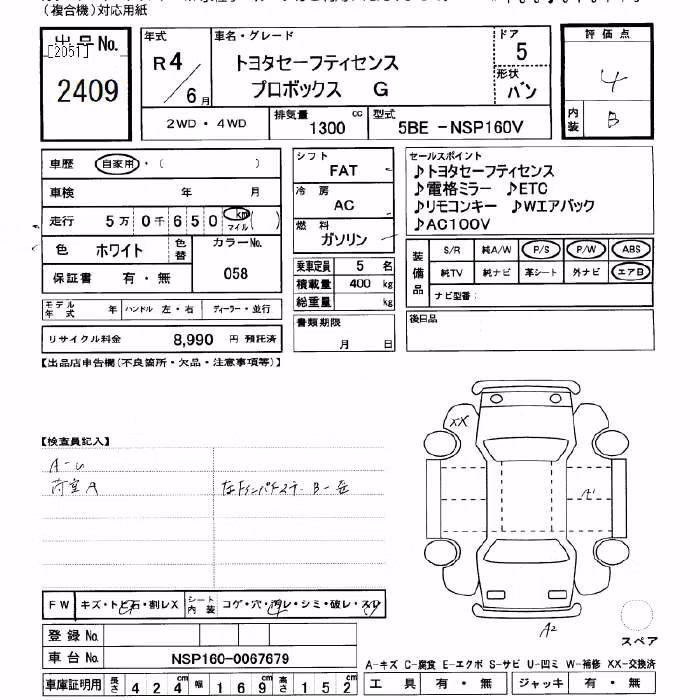 (複合機)対応用紙
出品No.
[2051]
2409
年式
R4/6月
車名・グレード
トヨタセーフティセンス
プロボックス G
ドア
5
形状
バン
評価点
4
内装
B
2WD・4WD
排気量
1300 cc
型式
5BE -NSP160V
車歴 自家用・( )
車検 年 月
走行 5万0千650 km マイル ( )
色 ホワイト 色替
カラーNo.
058
保証書 有・無
モデル年式 年 ハンドル 左・右 ディーラー・並行
リサイクル料金 8,990 円 預託済
シフト
FAT
冷房
AC
燃料
ガソリン
乗車定員 5 名
積載量 400 kg
総重量 kg
書類期限
月 日
セールスポイント
♪トヨタセーフティセンス
♪電格ミラー ♪ETC
♪リモコンキー ♪Wエアバック
♪AC100V
装備品
S/R 純A/W P/S P/W ABS
純TV 純ナビ 革シート 外ナビ エアB
ナビ型番:
後日品
【出品店申告欄(不良箇所・欠品・注意事項等)】
【検査員記入】
A-U
荷室A
XX
A1
A2
スペア
FW キズ・トビ石・割レX シート内装 コゲ・穴・汚レ・シミ・破レ・スレ
登録No.
車台No. NSP160-0067679
車庫証明用 長さ 424cm 幅 169cm 高さ 152cm
A-キズ C-腐食 E-エクボ S-サビ U-凹ミ W-補修 XX-交換済
工具 有・無 ジャッキ 有・無